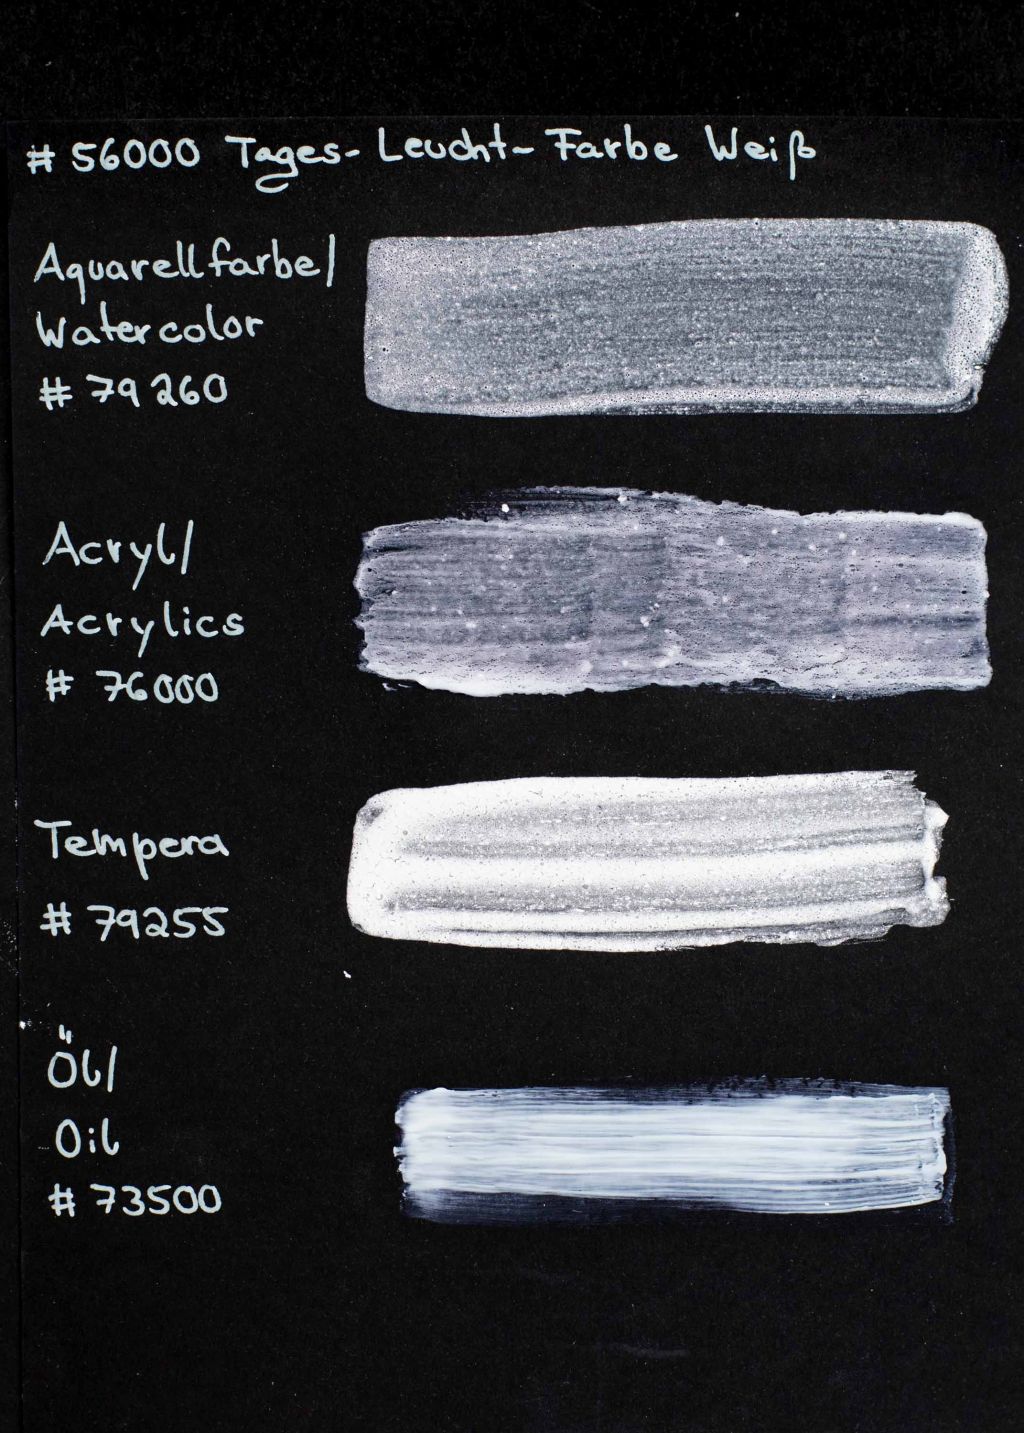 # 56000 Tages-Leucht-Farbe Weiß
Aquarellfarbe/
Watercolor
# 79260
Acryl/
Acrylics
# 76000
Tempera
# 79255
Öl/
Oil
# 73500